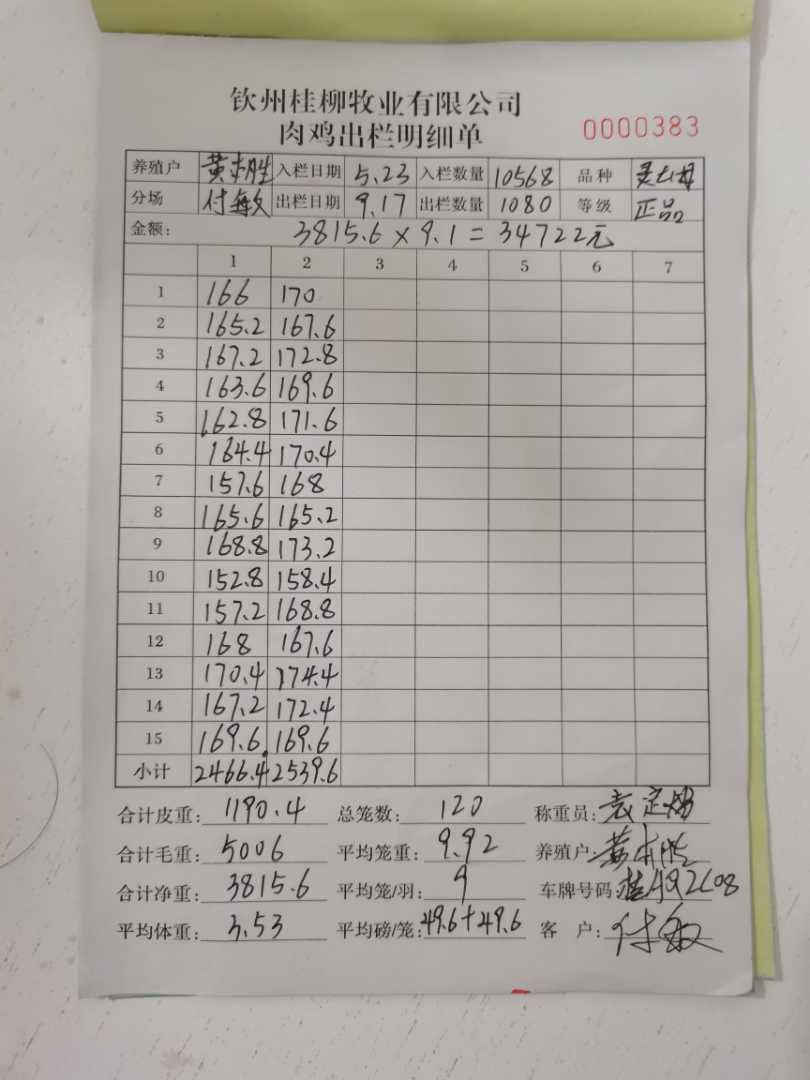 钦州桂柳牧业有限公司
肉鸡出栏明细单 0000383
养殖户 黄 胜 入栏日期 5.23 入栏数量 10568 品种 灵山母
分场 付敏 出栏日期 9.17 出栏数量 1080 等级 正品
金额: 3815.6 × 9.1 = 34722元
1 2 3 4 5 6 7
1 166 170
2 165.2 167.6
3 167.2 172.8
4 163.6 169.6
5 162.8 171.6
6 164.4 170.4
7 157.6 168
8 165.6 165.2
9 168.8 173.2
10 152.8 158.4
11 157.2 168.8
12 168 167.6
13 170.4 174.4
14 167.2 172.4
15 169.6 169.6
小计 2466.4 2539.6
合计皮重: 1190.4 总笼数: 120 称重员: 袁定
合计毛重: 5006 平均笼重: 9.92 养殖户: 黄
合计净重: 3815.6 平均笼/羽: 9 车牌号码: 桂
平均体重: 3.53 平均磅/笼: 49.6+49.6 客户: 付敏